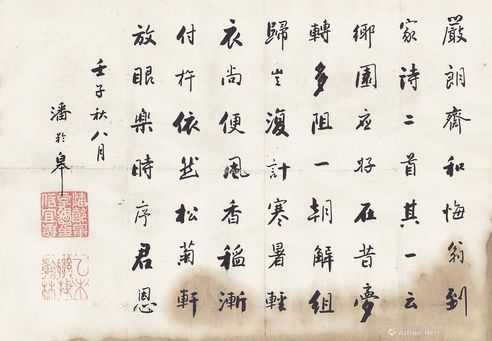 嚴朗齋和悔翁到
家詩二首其一云
鄉園應好在昔夢
轉多阻一朝解組
歸豈復計寒暑輕
衣尚便風香稻漸
付杵依然松菊軒
放眼樂時序君恩
壬子秋八月
潘齡皋
乙未翰林
Artron.Net